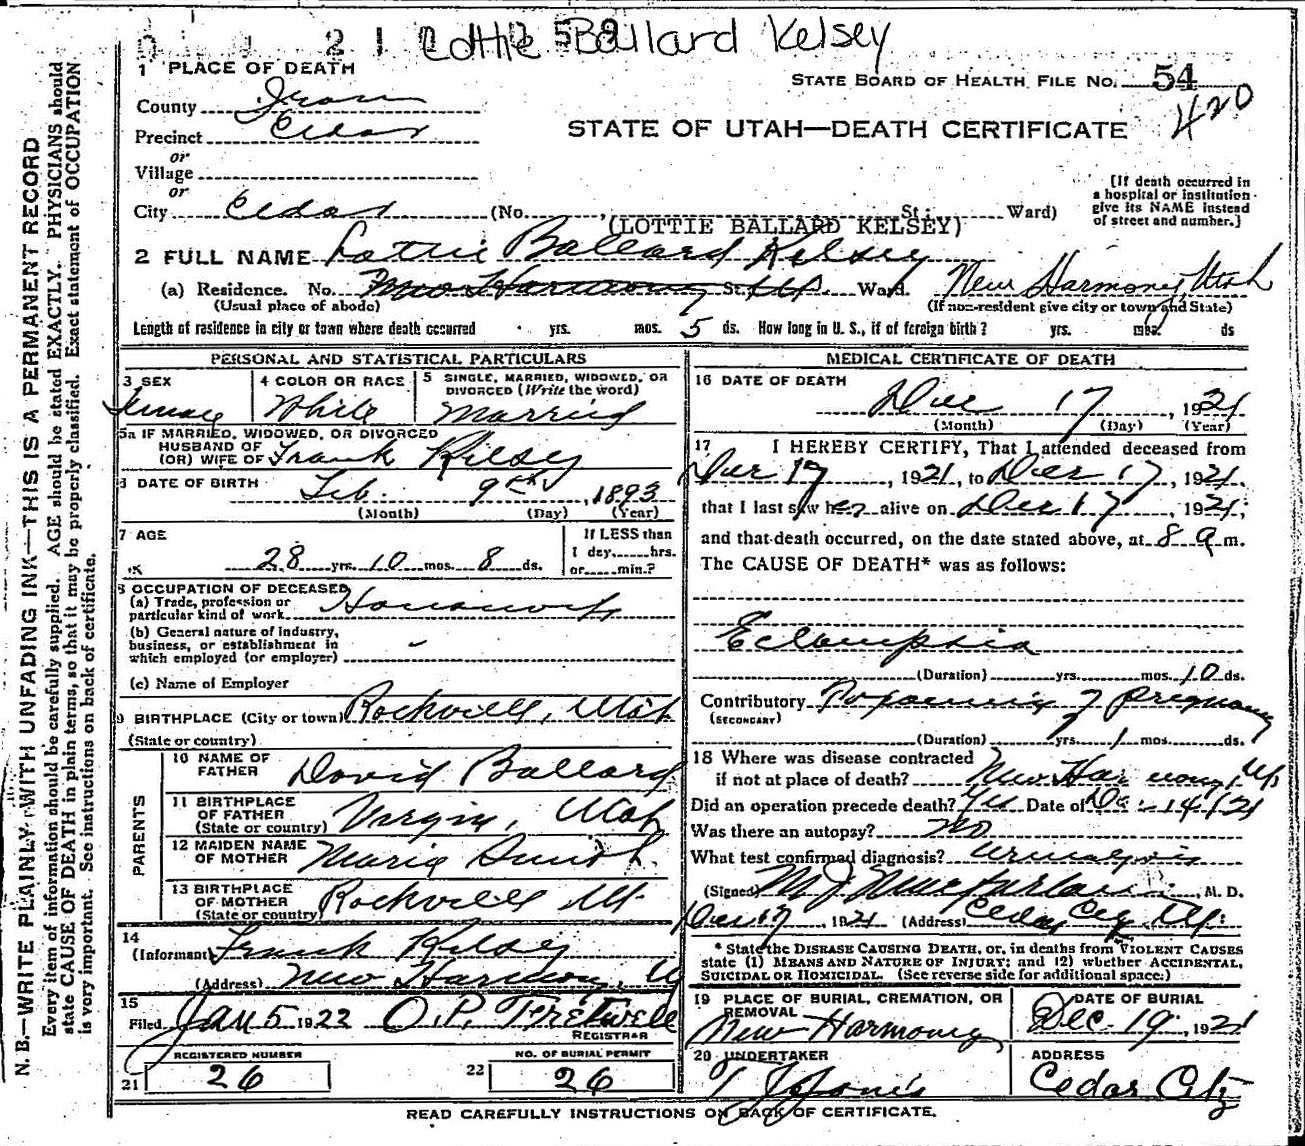 Lottie Ballard Kelsey
1 PLACE OF DEATH
STATE BOARD OF HEALTH FILE NO. 54
County Iron
420
Precinct Cedar
STATE OF UTAH—DEATH CERTIFICATE
or
Village
or
City Cedar (No. , St.; Ward)
[If death occurred in
a hospital or institution
give its NAME instead
of street and number.]
(LOTTIE BALLARD KELSEY)
2 FULL NAME Lottie Ballard Kelsey
(a) Residence. No. New Harmony St. Ut. Ward. New Harmony, Utah
(Usual place of abode) (If non-resident give city or town and State)
Length of residence in city or town where death occurred yrs. mos. 5 ds. How long in U. S., if of foreign birth? yrs. mos. ds
PERSONAL AND STATISTICAL PARTICULARS
3 SEX
Female
4 COLOR OR RACE
White
5 SINGLE, MARRIED, WIDOWED, OR
DIVORCED (Write the word)
Married
5a IF MARRIED, WIDOWED, OR DIVORCED
HUSBAND OF
(OR) WIFE OF Frank Kelsey
6 DATE OF BIRTH
Feb. 9th, 1893
(Month) (Day) (Year)
7 AGE
28 yrs. 10 mos. 8 ds.
If LESS than
1 day, hrs.
or min.?
8 OCCUPATION OF DECEASED
(a) Trade, profession or
particular kind of work Housewife
(b) General nature of industry,
business, or establishment in
which employed (or employer)
(c) Name of Employer
9 BIRTHPLACE (City or town) Rockville, Utah
(State or country)
PARENTS
10 NAME OF
FATHER David Ballard
11 BIRTHPLACE
OF FATHER
(State or country) Virgin, Utah
12 MAIDEN NAME
OF MOTHER Maria Smith
13 BIRTHPLACE
OF MOTHER
(State or country) Rockville Ut.
14
(Informant) Frank Kelsey
(Address) New Harmony, U
15
Filed Jan 5 1922 O. P. Fretwell
REGISTRAR
REGISTERED NUMBER
21 26
NO. OF BURIAL PERMIT
22 26
MEDICAL CERTIFICATE OF DEATH
16 DATE OF DEATH
Dec 17, 1921
(Month) (Day) (Year)
17 I HEREBY CERTIFY, That I attended deceased from
Dec 17, 1921, to Dec 17, 1921
that I last saw her alive on Dec 17, 1921,
and that death occurred, on the date stated above, at 8 a m.
The CAUSE OF DEATH* was as follows:
Eclampsia
(Duration) yrs. mos. 10 ds.
Contributory Toxaemia of pregnancy
(SECONDARY)
(Duration) yrs. 1 mos. ds.
18 Where was disease contracted
if not at place of death? New Harmony, Ut.
Did an operation precede death? Yes Date of Dec 14/21
Was there an autopsy? No
What test confirmed diagnosis? Urinalysis
(Signed) M J Macfarlane, M. D.
Dec 17 1921 (Address) Cedar City Ut.
* State the DISEASE CAUSING DEATH, or, in deaths from VIOLENT CAUSES
state (1) MEANS AND NATURE OF INJURY; and (2) whether ACCIDENTAL,
SUICIDAL OR HOMICIDAL. (See reverse side for additional space.)
19 PLACE OF BURIAL, CREMATION, OR
REMOVAL
New Harmony
DATE OF BURIAL
Dec. 19, 1921
20 UNDERTAKER
T J Jones
ADDRESS
Cedar City
READ CAREFULLY INSTRUCTIONS ON BACK OF CERTIFICATE.
N. B.—WRITE PLAINLY WITH UNFADING INK—THIS IS A PERMANENT RECORD
Every item of information should be carefully supplied. AGE should be stated EXACTLY. PHYSICIANS should
state CAUSE OF DEATH in plain terms, so that it may be properly classified. Exact statement of OCCUPATION
is very important. See instructions on back of certificate.